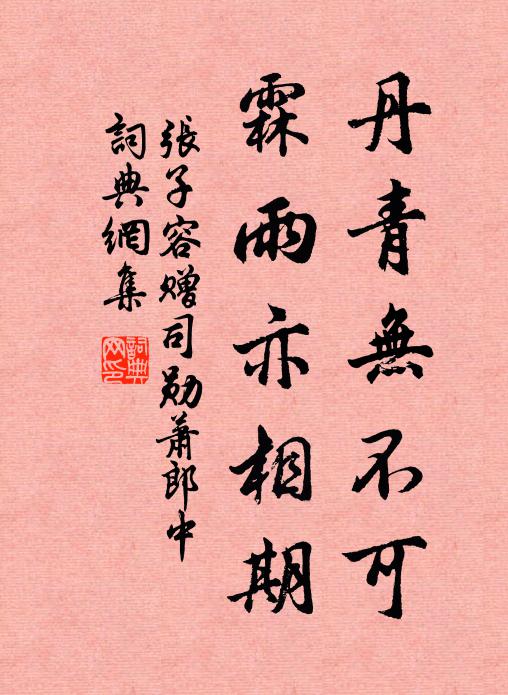 丹青無不可
霖雨亦相期
張子容贈司勛蕭郎中
詞典網集
詞典网印